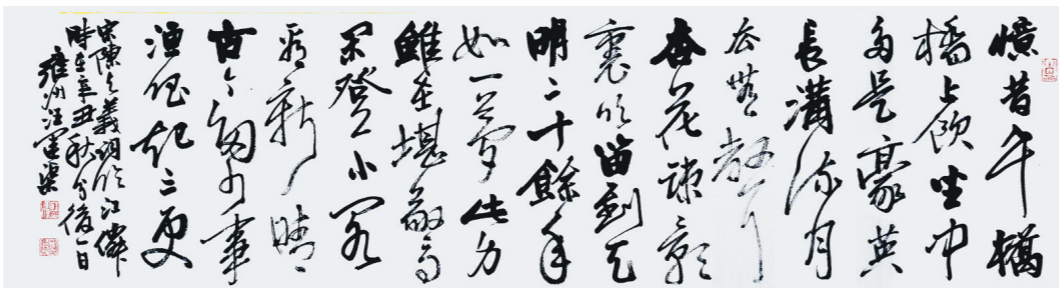 憶昔午橋
橋上飲坐中
多是豪英
長溝流月
去無聲
杏花疎影
裏吹笛到天
明二十餘年
如一夢此身
雖在堪驚
閑登小閣
看新晴
古今多少事
漁唱起三更
宋陳與義詞臨江僊
時在辛丑秋分後一日
雍州汪運渠